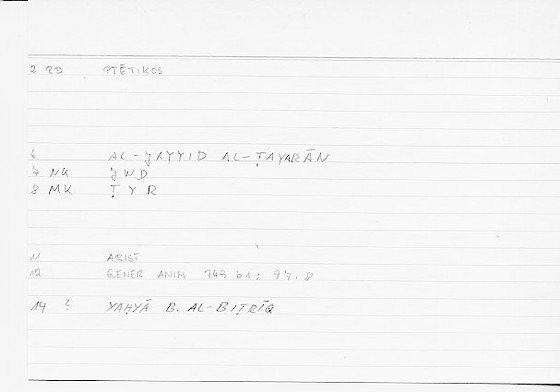 2 RD PTĒTIKOS
6 AL-ǦAYYID AL-ṬAYARĀN
7 NK ǦWD
8 MK ṬYR
11 ARIST
12 GENER ANIM 749 b1 : 97, 8
14 ? YAḤYĀ B. AL-BIṬRĪQ